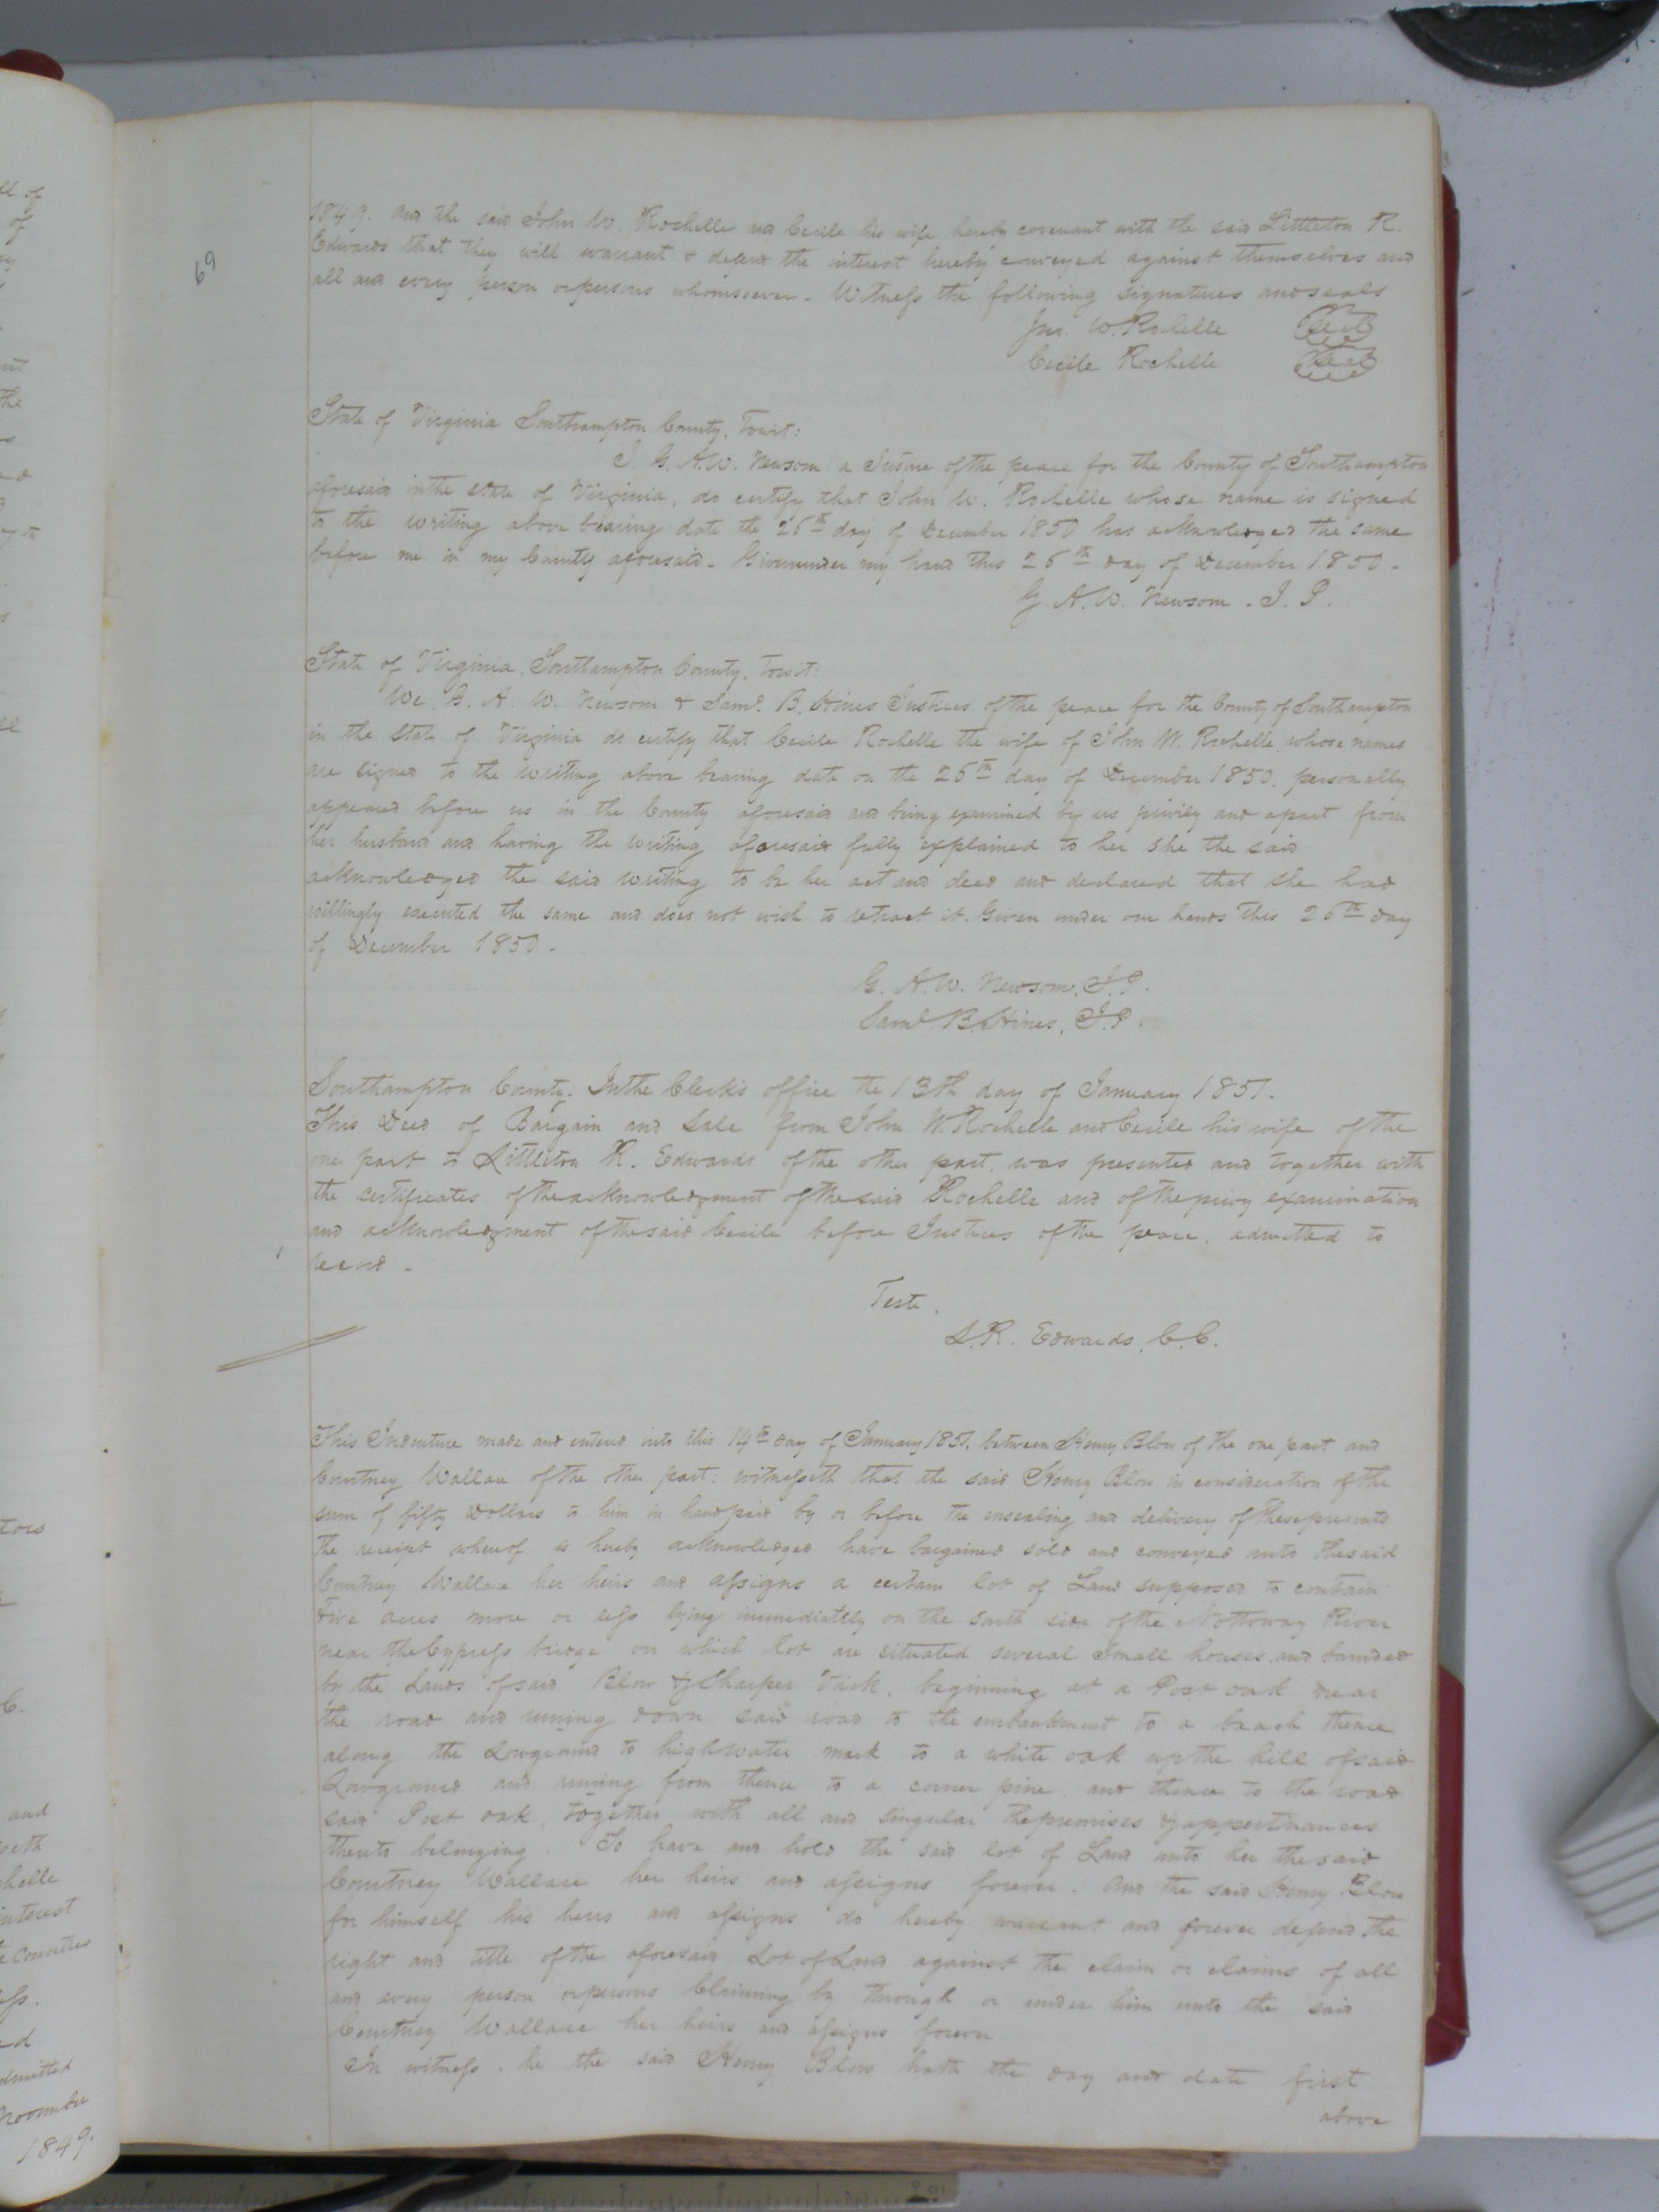 69
1849. And the said John W. Rochelle and Cecile his wife hereby covenant with the said Littleton R.
Edwards that they will warrant & defend the interest hereby conveyed against themselves and
all and every person or persons whomsoever. Witness the following signatures and seals
Jno. W. Rochelle Seal
Cecile Rochelle Seal
State of Virginia Southampton County, Towit:
I G. A. W. Newsom a Justice of the peace for the County of Southampton
aforesaid in the State of Virginia, do certify that John W. Rochelle whose name is signed
to the writing above bearing date the 26th day of December 1850 has acknowledged the same
before me in my County aforesaid. Given under my hand this 26th day of December 1850.
G. A. W. Newsom. J. P.
State of Virginia, Southampton County, Towit:
We, G. A. W. Newsom & Saml. B. Hines Justices of the peace for the County of Southampton
in the State of Virginia do certify that Cecile Rochelle the wife of John W. Rochelle, whose names
are signed to the writing above bearing date on the 26th day of December 1850, personally
appeared before us in the County aforesaid and being examined by us privily and apart from
her husband and having the writing aforesaid fully explained to her she the said
acknowledged the said writing to be her act and deed and declared that she had
willingly executed the same and does not wish to retract it. Given under our hands this 26th day
of December 1850.
G. A. W. Newsom, J. P.
Saml B. Hines, J. P.
Southampton County. In the Clerk's office the 13th day of January 1851.
This Deed of Bargain and Sale from John W. Rochelle and Cecile his wife of the
one part to Littleton R. Edwards of the other part, was presented and together with
the certificates of the acknowledgment of the said Rochelle and of the privy examination
and acknowledgment of the said Cecile before Justices of the peace, admitted to
record.
Teste,
L. R. Edwards, C. C.
This Indenture made and entered into this 14th day of January 1851, between Henry Blow of the one part and
Courtney Wallace of the other part: witnesseth that the said Henry Blow in consideration of the
sum of fifty Dollars to him in hand paid by or before the ensealing and delivery of these presents
the receipt whereof is hereby acknowledged have bargained sold and conveyed unto the said
Courtney Wallace her heirs and assigns a certain lot of Land supposed to contain
Five acres more or less lying immediately on the south side of the Nottoway River
near the Cypress bridge on which lot are situated several Small houses and bounded
by the Lands of said Blow & Sharper Vick, beginning at a Post oak near
the road and runing down said road to the embankment to a beach thence
along the Lowground to highwater mark to a white oak up the hill of said
Lowground and runing from thence to a corner pine, and thence to the road
said Post oak, together with all and singular the premises & appertinances
thereto belonging. To have and hold the said lot of Land unto her the said
Courtney Wallace her heirs and assigns forever. And the said Henry Blow
for himself his heirs and assigns do hereby warrant and forever defend the
right and title of the aforesaid Lot of Land against the claim or claims of all
and every person or persons Claiming by through or under him unto the said
Courtney Wallace her heirs and assigns forever
In witness, he the said Henry Blow hath the day and date first
above